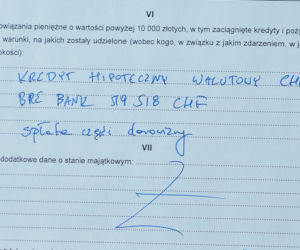 VI
owiązania pieniężne o wartości powyżej 10 000 złotych, w tym zaciągnięte kredyty i poży
warunki, na jakich zostały udzielone (wobec kogo, w związku z jakim zdarzeniem, w j
okości):
KREDYT HIPOTECZNY WALUTOWY CHF
BRE BANK 519 518 CHF
spłata części darowizny
VII
dodatkowe dane o stanie majątkowym: